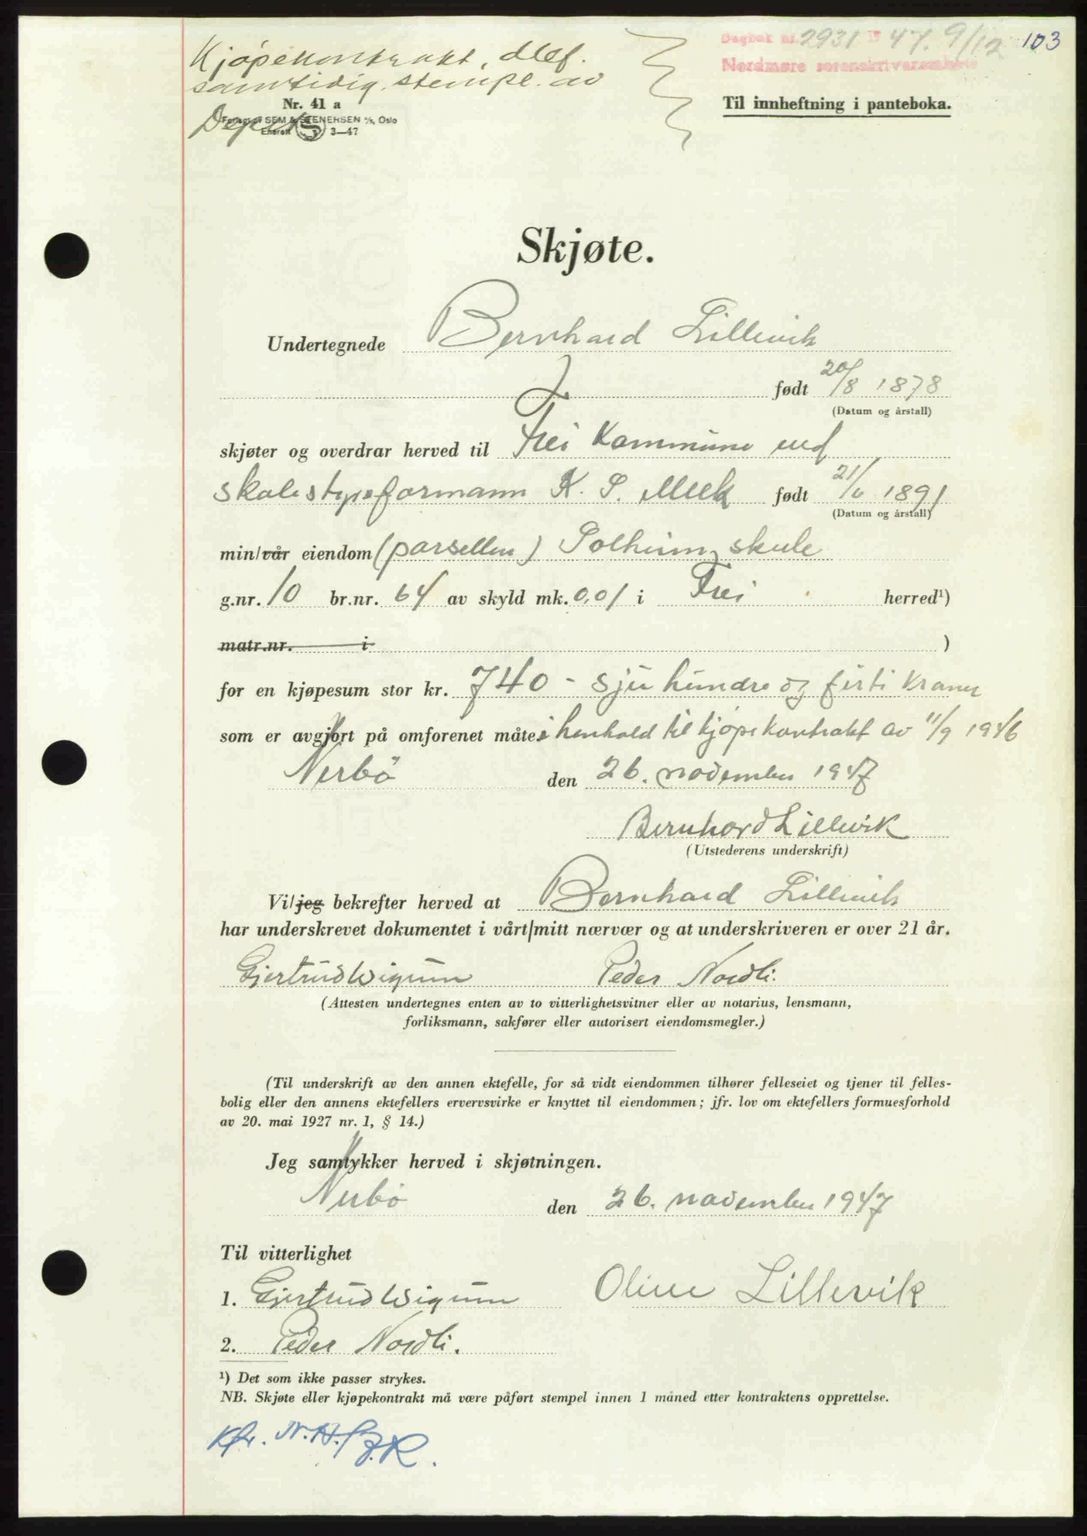 Kjøpekontrakt, dlef.
samtidig. stempl. av
Dagbok nr. 2931 19 47. 9/12 103
Nordmøre sorenskriverembete
Nr. 41 a
Forlag SEM & STENERSEN A/S, Oslo
Enerett S 3—47
Til innheftning i panteboka.
Skjøte.
Undertegnede Bernhard Lillevik
født 20/8 1878
(Datum og årstall)
skjøter og overdrar herved til Frei Kommune ved
skolestyreformann K. P. Meek født 21/6 1891
(Datum og årstall)
min/vår eiendom (parsellen) Solheim skule
g.nr. 10 br.nr. 64 av skyld mk. 0,01 i Frei herred¹)
matr.nr. i )
for en kjøpesum stor kr. 740 - sju hundre og firti kroner
som er avgjort på omforenet måte i henhold til kjøpekontrakt av 11/9 1946
Nerbö den 26. november 1947
Bernhard Lillevik
(Utstederens underskrift)
Vi/jeg bekrefter herved at Bernhard Lillevik
har underskrevet dokumentet i vårt/mitt nærvær og at underskriveren er over 21 år.
Gjertrud Wigum Peder Nordli.
(Attesten undertegnes enten av to vitterlighetsvitner eller av notarius, lensmann,
forliksmann, sakfører eller autorisert eiendomsmegler.)
(Til underskrift av den annen ektefelle, for så vidt eiendommen tilhører felleseiet og tjener til felles-
bolig eller den annens ektefellers ervervsvirke er knyttet til eiendommen; jfr. lov om ektefellers formuesforhold
av 20. mai 1927 nr. 1, § 14.)
Jeg samtykker herved i skjøtningen.
Nerbö den 26. november 1947
Til vitterlighet
1. Gjertrud Wigum Oline Lillevik
2. Peder Nordli.
¹) Det som ikke passer strykes.
NB. Skjøte eller kjøpekontrakt må være påført stempel innen 1 måned etter kontraktens opprettelse.